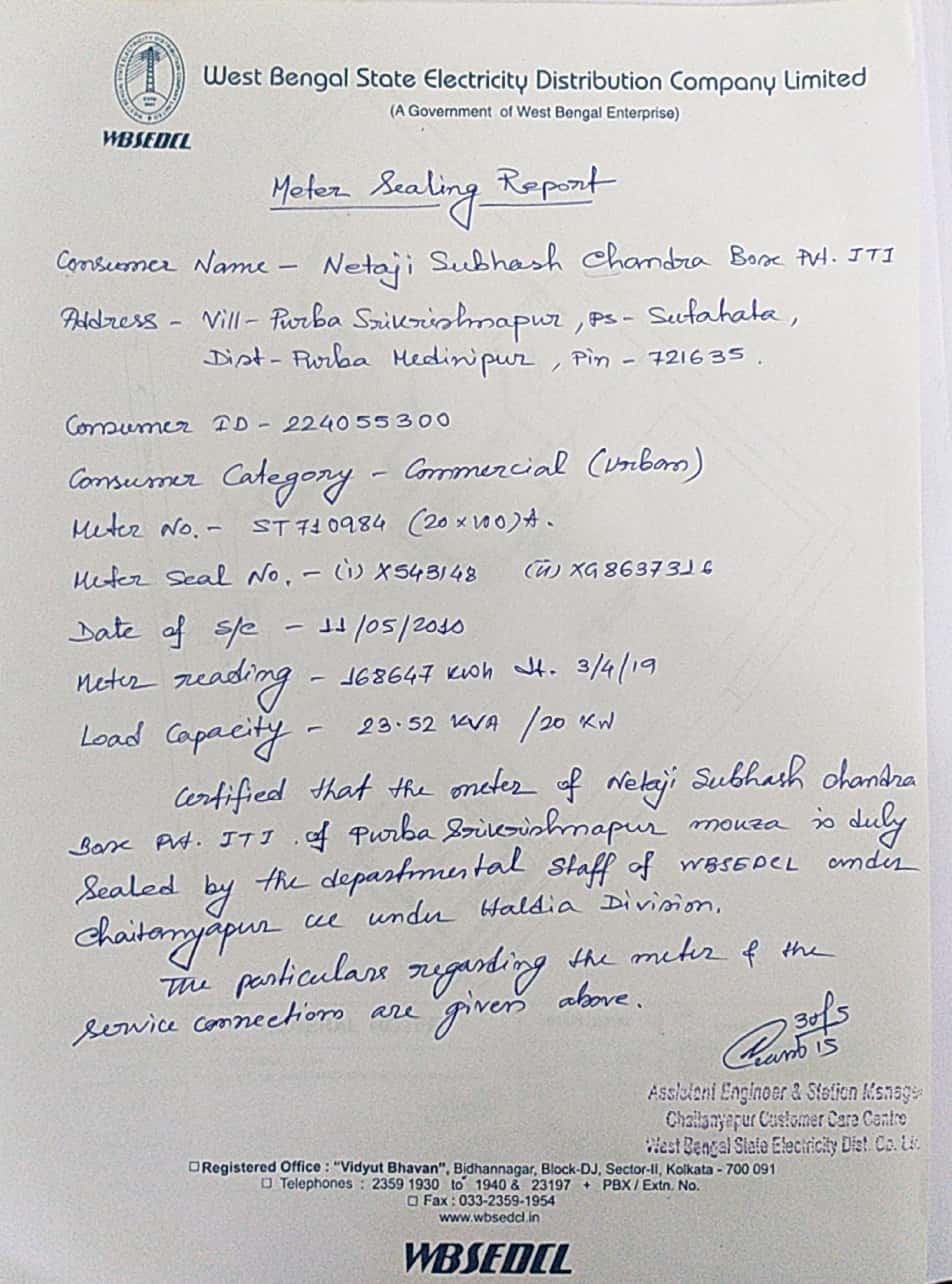 West Bengal State Electricity Distribution Company Limited
(A Government of West Bengal Enterprise)
WBSEDCL
Meter Sealing Report
Consumer Name - Netaji Subhash Chandra Bose Pvt. ITI
Address - Vill - Purba Srikrishnapur, PS - Sutahata,
Dist - Purba Medinipur, Pin - 721635.
Consumer ID - 224055300
Consumer Category - Commercial (Urban)
Meter No. - ST710984 (20x100)A.
Meter Seal No. - (i) X543148 (ii) XG8637316
Date of S/C - 11/05/2010
Meter reading - 168647 KWh dt. 3/4/19
Load Capacity - 23.52 KVA / 20 KW
Certified that the meter of Netaji Subhash Chandra
Bose Pvt. ITI. of Purba Srikrishnapur mouza is duly
Sealed by the departmental staff of WBSEDCL under
Chaitanyapur ccc under Haldia Division.
The particulars regarding the meter & the
service connections are given above.
Assistant Engineer & Station Manage
Chaitanyapur Customer Care Centre
West Bengal State Electricity Dist. Co. Lt.
Registered Office : "Vidyut Bhavan", Bidhannagar, Block-DJ, Sector-II, Kolkata - 700 091
Telephones : 2359 1930 to 1940 & 23197 + PBX / Extn. No.
Fax : 033-2359-1954
www.wbsedcl.in
WBSEDCL